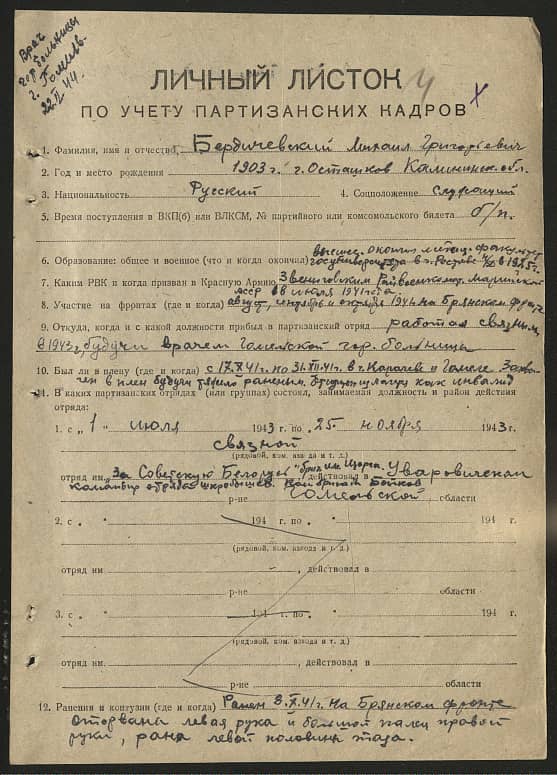 Врач
гор. больницы
г. Гомель
22.II 44.
ЛИЧНЫЙ ЛИСТОК
ПО УЧЕТУ ПАРТИЗАНСКИХ КАДРОВ
1. Фамилия, имя и отчество Бердичевский Михаил Григорьевич
2. Год и место рождения 1903 г. г. Осташков Калининск. обл.
3. Национальность Русский 4. Соцположение служащий
5. Время поступления в ВКП(б) или ВЛКСМ, № партийного или комсомольского билета б/п.
высшее, окончил
6. Образование: общее и военное (что и когда окончил) госуниверситета в г. Ростове н/Д в 1925 г.
7. Каким РВК и когда призван в Красную Армию Звениговским Райвоенкомат. Марийской
АССР 1941 года
8. Участие на фронтах (где и когда) август, сентябрь и октябрь 1941 на Брянском фронте
9. Откуда, когда и с какой должности прибыл в партизанский отряд работая связным
в 1943 г. будучи врачем Гомельской гор. больницы
10. Был ли в плену (где и когда) с 17.X 41 г. по 31.XII 41 г. в г. Карачеве и Гомеле. Захва-
чен в плен будучи тяжело раненым. как инвалид
11. В каких партизанских отрядах (или группах) состоял, занимаемая должность и район действия
отряда:
1. с "1" июля 1943 г. по "25" ноября 1943 г.
связной
(рядовой, ком. взвода и т. д.)
отряд им. "За Советскую Белорусь" бриг. им. Щорса действовал в Уваровичском
командир отряда Ком. бригады Бойков
р-не Гомельской области
2. с " " 194 г. по " " 194 г.
(рядовой, ком. взвода и т. д.)
отряд им. , действовал в
р-не области
3. с " " 194 г. по " " 194 г.
(рядовой, ком. взвода и т. д.)
отряд им. , действовал в
р-не области
12. Ранения и контузии (где и когда) Ранен 3.X.41 г. на Брянском фронте
оторвана левая рука и большой палец правой
руки, рана левой половины таза.